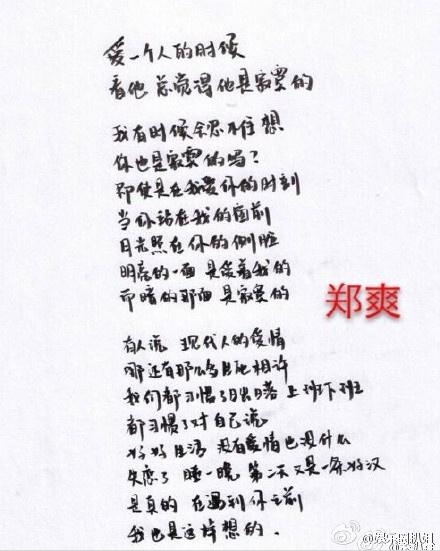 爱一个人的时候
看他 总觉得他是寂寞的
我有时候会忍不住想
你也是寂寞的吗？
即使是在我爱你的时刻
当你站在我的窗前
月光照在你的侧脸
明亮的一面 是笑着我的
而暗的那面 是寂寞的
郑爽
有人说 现代人的爱情
哪还有那么多生死相许
我们都习惯了日出日落 上班下班
都习惯了对自己说
好好生活 没有爱情也没什么
失恋了 睡一晚 第二天又是一条好汉
是真的 在遇到你之前
我也是这样想的.